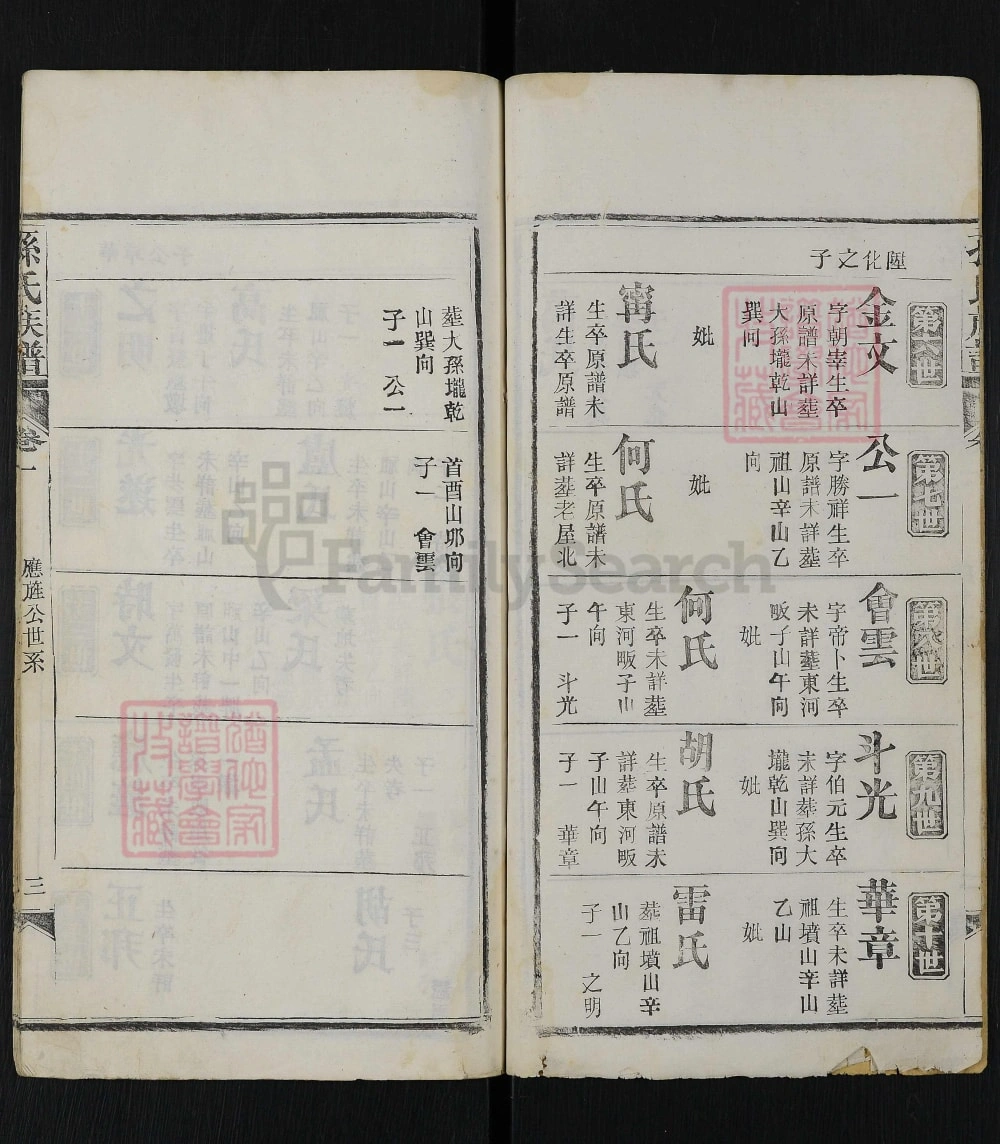 陞化之子
第六世
金文
字朝宰生卒
原譜未詳塟
大孫壠乾山
巽向
妣
甯氏
生卒原譜未
詳生卒原譜
塟大孫壠乾
山巽向
子一 公一
第七世
公一
字勝祥生卒
原譜未詳塟
祖山辛山乙
向
妣
何氏
生卒原譜未
詳塟老屋北
首酉山夘向
子一 會雲
第八世
會雲
字帝卜生卒
未詳塟東河
畈子山午向
妣
何氏
生卒未詳塟
東河畈子山
午向
子一 斗光
第九世
斗光
字伯元生卒
未詳塟孫大
壠乾山巽向
妣
胡氏
生卒原譜未
詳塟東河畈
子山午向
子一 華章
第十世
華章
生卒未詳塟
祖墳山辛山
乙山
妣
雷氏
塟祖墳山辛
山乙向
子一 之明
孫氏族譜
卷一
應旌公世系
三
FamilySearch